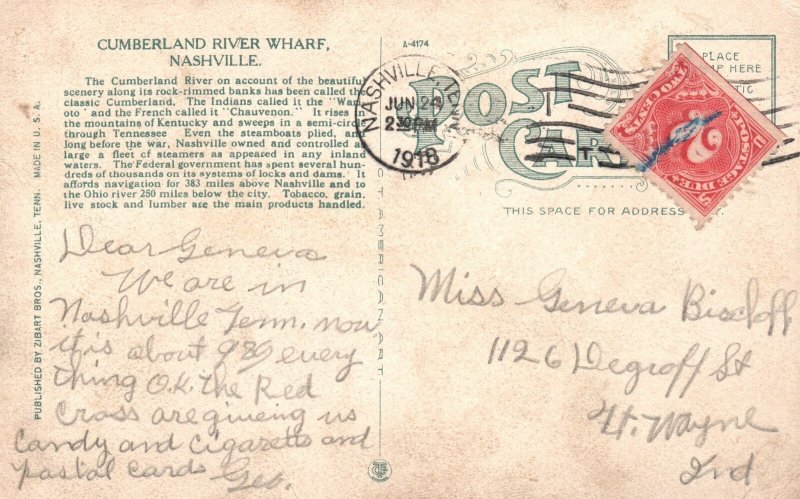 CUMBERLAND RIVER WHARF,
NASHVILLE.
The Cumberland River on account of the beautiful
scenery along its rock-rimmed banks has been called the
classic Cumberland. The Indians called it the "Wan-
oto" and the French called it "Chauvenon." It rises
the mountains of Kentucky and sweeps in a semi-circle
through Tennessee Even the steamboats plied, an
long before the war, Nashville owned and controlled as
large a fleet of steamers as appeared in any inland
waters. The Federal government has spent several hun-
dreds of thousands on its systems of locks and dams. It
affords navigation for 383 miles above Nashville and to
the Ohio river 250 miles below the city. Tobacco, grain,
live stock and lumber are the main products handled.
PUBLISHED BY ZIBART BROS., NASHVILLE, TENN. MADE IN U. S. A.
Dear Geneva
We are in
Nashville Tenn. now
it is about 930 every
thing O.K. the Red
Cross are giveing us
Candy and Cigaretts and
postal cards Geo.
A-4174
NASHVILLE, TENN.
JUN 24
230 PM
1918
POST
CARD
PLACE
STAMP HERE
TWO CENTS
2
POSTAGE DUE
U S
THIS SPACE FOR ADDRESS
AMERICAN ART
Miss Geneva Bischoff
1126 Degroff St
Ft. Wayne
Ind